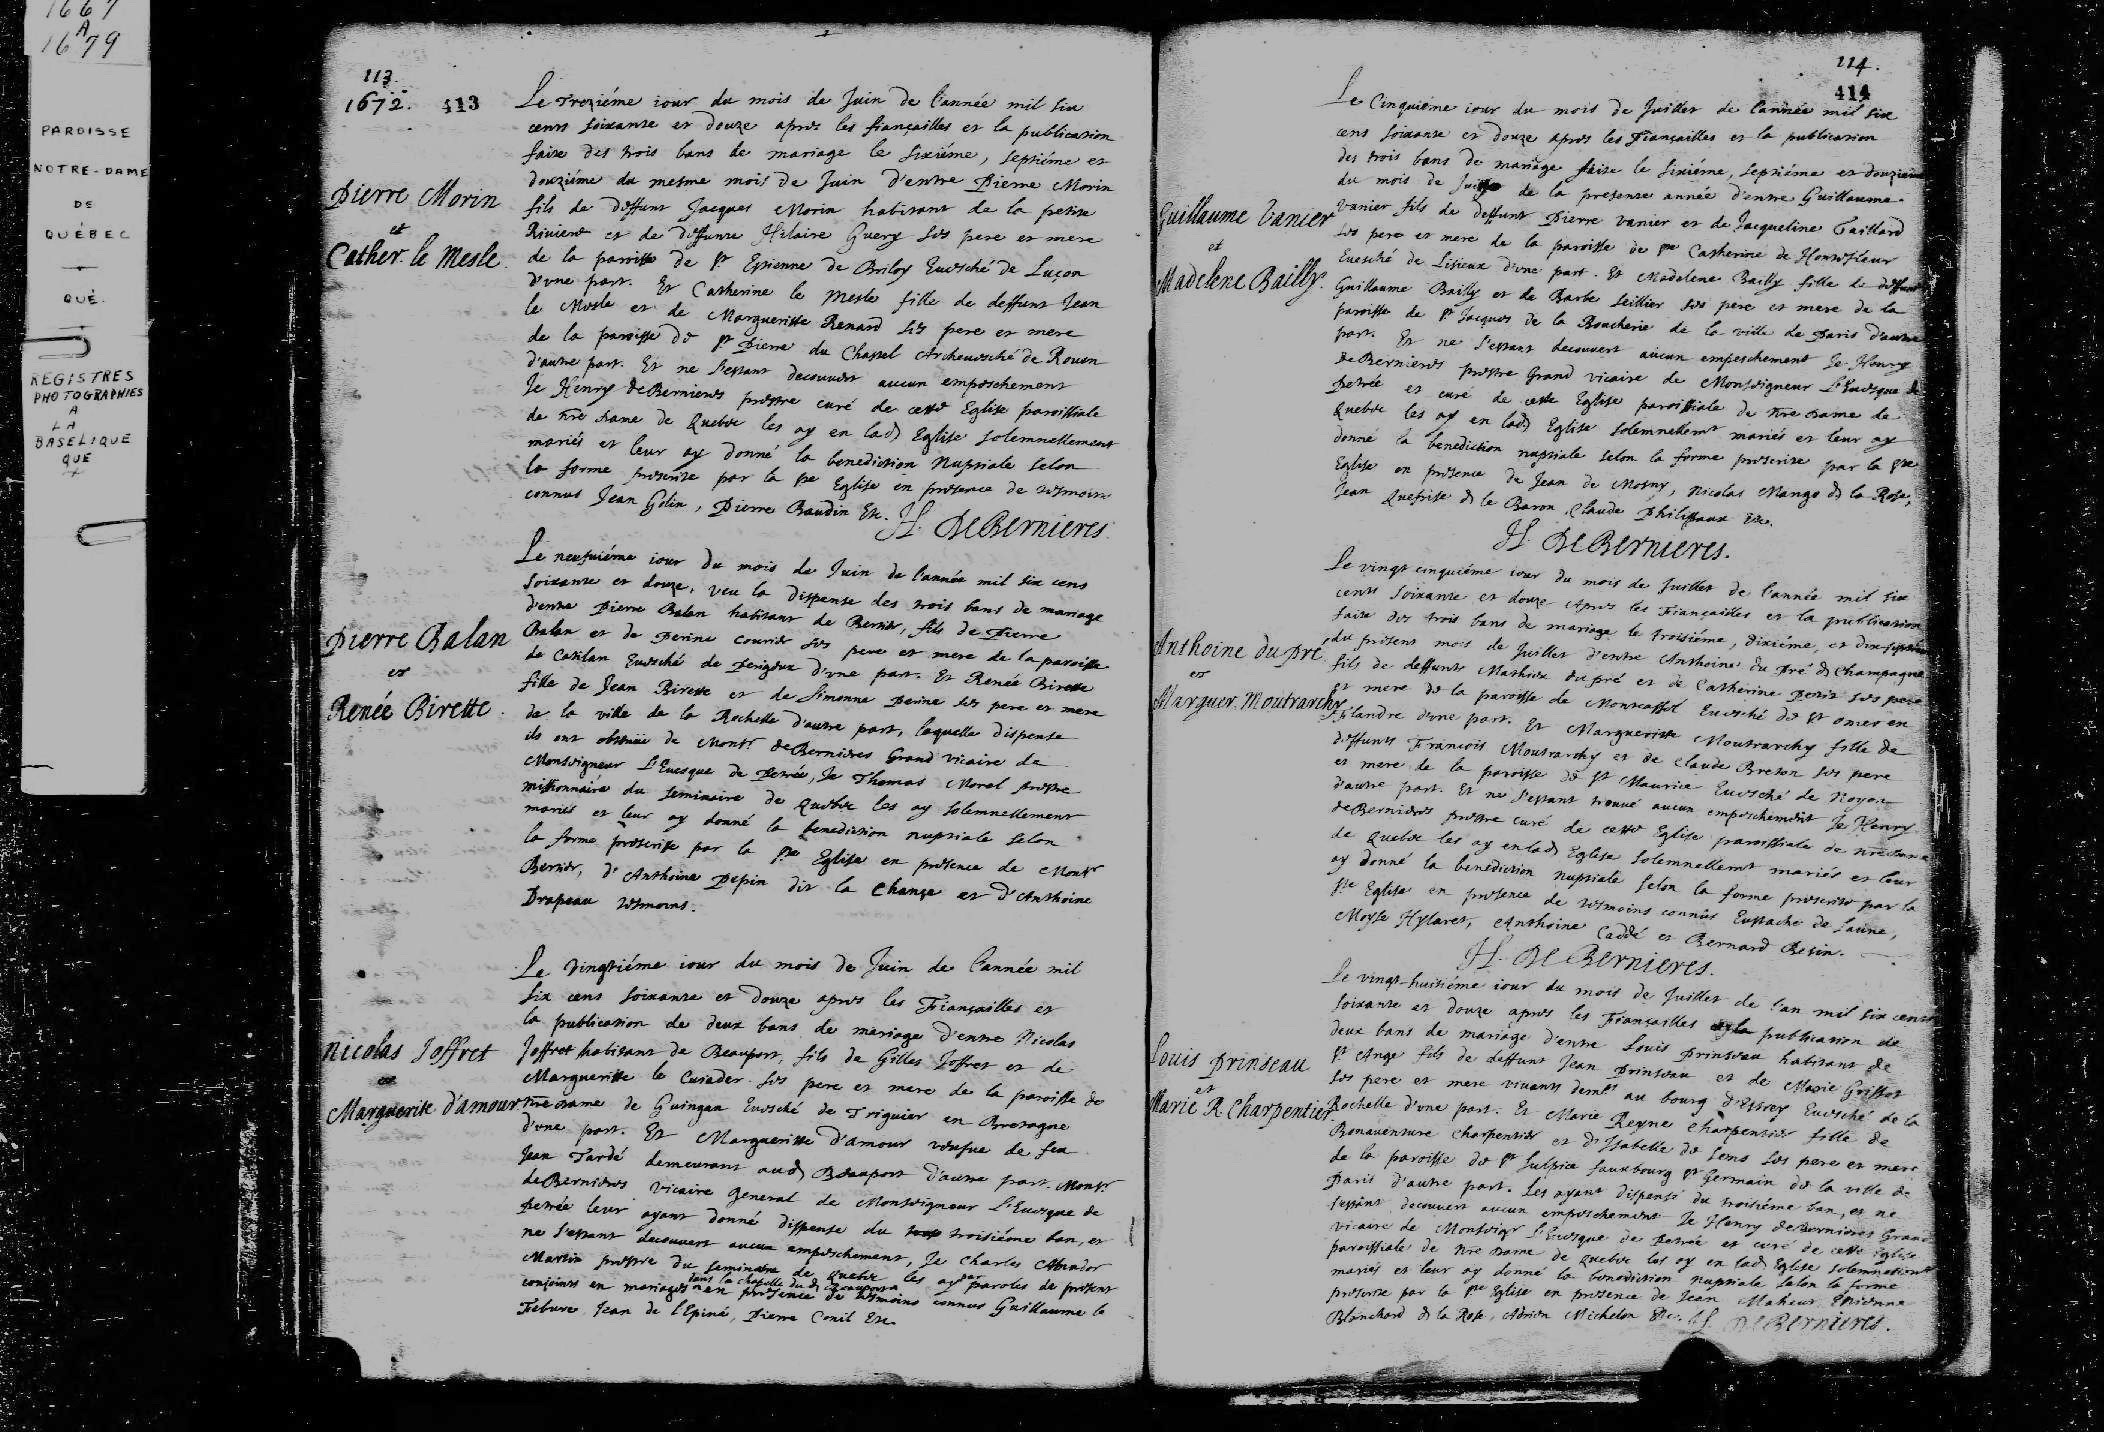 1667
A
1679
PAROISSE
NOTRE-DAME
DE
QUÉBEC
QUÉ.
REGISTRES
PHOTOGRAPHIES
A
LA
BASELIQUE
QUE
113.
1672. 413
Le Trezième iour du mois de Juin de l'année mil six
cents soixante et douze apres les fiançailles et la publication
faite des trois bans de mariage le sixième, septième et
douzième du mesme mois de Juin d'entre Pierre Morin
Pierre Morin
et
Cather. le Mesle
fils de deffunt Jacques Morin habitant de la petite
Riviere et de deffunte Hilaire Guery ses pere et mere
de la paroisse de St Estienne de Briloy Euesché de Luçon
d'vne part. Et Catherine le Mesle fille de deffunt Jean
le Mesle et de Margueritte Renard ses pere et mere
de la paroisse de St Pierre du Chastel Archeuesché de Rouen
d'autre part. Et ne s'estant decouuert aucun empeschement
Je Henry de Bernieres prestre curé de cette Eglise paroissiale
de nre Dame de Quebec les ay en lad Eglise solemnellement
mariés et leur ay donné la benediction Nuptiale selon
la forme prescrite par la Ste Eglise en presence de tesmoins
connus Jean Gelin, Pierre Baudin Etc. H. De Bernieres.
Le neufuième iour du mois de Juin de l'année mil six cens
soixante et douze, veu la dispense des trois bans de mariage
d'entre Pierre Balan habitant de Bertier, fils de Pierre
Pierre Balan
et
Renée Birette
Balan et de Perine courier ses pere et mere de la paroisse
de Cantilan Euesché de Perigeux d'vne part. Et Renée Birette
fille de Jean Birette et de Simonne Perine ses pere et mere
de la ville de la Rochelle d'autre part, laquelle dispense
ils ont obtenüe de Monsr. de Bernieres Grand vicaire de
Monseigneur L'Euesque de Petrée, Je Thomas Morel prestre
missionnaire du seminaire de Quebec les ay solemnellement
mariés et leur ay donné la benediction nuptiale selon
la forme prescrite par la Ste Eglise en presence de Monsr
Bertier, d'Anthoine Pepin dit la Chance et d'Anthoine
Drapeau tesmoins.
Le vingtième iour du mois de Juin de l'année mil
six cens soixante et douze apres les Fiançailles et
la publication de deux bans de mariage d'entre Nicolas
Nicolas Joffret
et
Marguerite d'amour
Joffret habitant de Beauport, fils de Gilles Joffret et de
Margueritte le ses pere et mere de la paroisse de
nre Dame de Guingan Euesché de Triguier en Bretagne
d'vne part. Et Margueritte d'amour veufue de feu
Jean Tardé demeurant aud Beauport d'autre part. Monsr.
de Bernieres vicaire general de Monseigneur L'Euesque de
Petrée leur ayant donné dispense du troisième ban, et
ne s'estant decouuert aucun empeschement, Je Charles Amador
Martin prestre du seminaire de Quebec les ay par paroles de present
dans la chapelle du d Beauport
conjoints en mariage en presence de tesmoins connus Guillaume le
Febure Jean de l'Epiné, Pierre Conil Etc.
114.
414
Le Cinquième iour du mois de Juillet de l'année mil six
cens soixante et douze apres les Fiançailles et la publication
des trois bans de mariage faite le sixième, septième et douzième
du mois de de la presente année d'entre Guillaume
Guillaume Vanier
et
Madelene Bailly.
Vanier fils de deffunt Pierre Vanier et de Jacqueline Taillard
ses pere et mere de la paroisse de Ste Catherine de Honnefleur
Euesché de Lisieux d'vne part. Et Madelene Bailly fille de deffunt
Guillaume Bailly et de Barbe Seillier ses pere et mere de la
paroisse de St Jacques de la Boucherie de la ville de Paris d'autre
part. Et ne s'estant decouuert aucun empeschement Je Henry
de Bernieres prestre Grand vicaire de Monseigneur L'Euesque de
Petrée et curé de cette Eglise paroissiale de nre Dame de
Quebec les ay en lad Eglise solemnellemt mariés et leur ay
donné la benediction nuptiale selon la forme prescrite par la Ste
Eglise en presence de Jean de Mosny, Nicolas Mango d la Rose,
Jean Quefrise d le Baron, Claude Philippaux Etc.
H. De Bernieres.
Le vingt cinquième iour du mois de Juillet de l'année mil six
cents soixante et douze Apres les Fiançailles et la publication
faite des trois bans de mariage le troisième, dixième, et dix septième
Anthoine du pré
et
Marguer. Moutrarchy
du present mois de Juillet d'entre Anthoine du Pré d Champagne
fils de deffunts Mathieu dupré et de Catherine Petit ses pere
et mere de la paroisse de Montcassel Euesché de St omer en
Flandre d'vne part. Et Margueritte Moutrarchy fille de
deffunts Francois Moutrarchy et de Claude Breton ses pere
et mere de la paroisse de St Maurice Euesché de Noyon
d'autre part. Et ne s'estant trouué aucun empeschement Je Henry
de Bernieres prestre curé de cette Eglise paroissiale de nre Dame
de Quebec les ay en lad Eglise solemnellemt mariés et leur
ay donné la benediction nuptiale selon la forme prescrite par la
Ste Eglise en presence de tesmoins connus Eustache de Laune,
Moyse Hylaret, Anthoine Caddé et Bernard Besin.
H. De Bernieres.
Le vingt-huitième iour du mois de Juillet de l'an mil six cens
soixante et douze apres les Fiançailles et la publication de
deux bans de mariage d'entre Louis Prinseau habitant de
Louis Prinseau
et
Marie R. Charpentier
St Ange fils de deffunt Jean Prinseau et de Marie Griffon
ses pere et mere viuants demts au bourg d'Estrey Euesché de la
Rochelle d'vne part. Et Marie Reyne Charpentier fille de
Bonauenture Charpentier et d'Isabelle de Sens ses pere et mere
de la paroisse de St Sulpice fauxbourg St Germain de la ville de
Paris d'autre part. Les ayant dispensé du troisième ban, et ne
s'estant decouuert aucun empeschement Je Henry de Bernieres Grand
vicaire de Monseigr L'Euesque de Petrée et curé de cette Eglise
paroissiale de nre Dame de Quebec les ay en lad Eglise solemnellemt
mariés et leur ay donné la benediction nuptiale selon la forme
prescrite par la Ste Eglise en presence de Jean Maheux, Estienne
Blanchard d la Rose, Adrien Michelon Etc. H. De Bernieres.